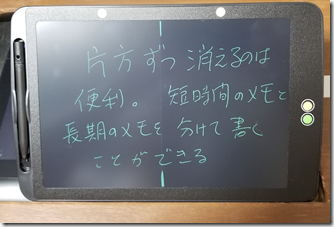 片方ずつ 消えるのは
便利。 短時間のメモと
長期のメモを 分けて書く
ことができる